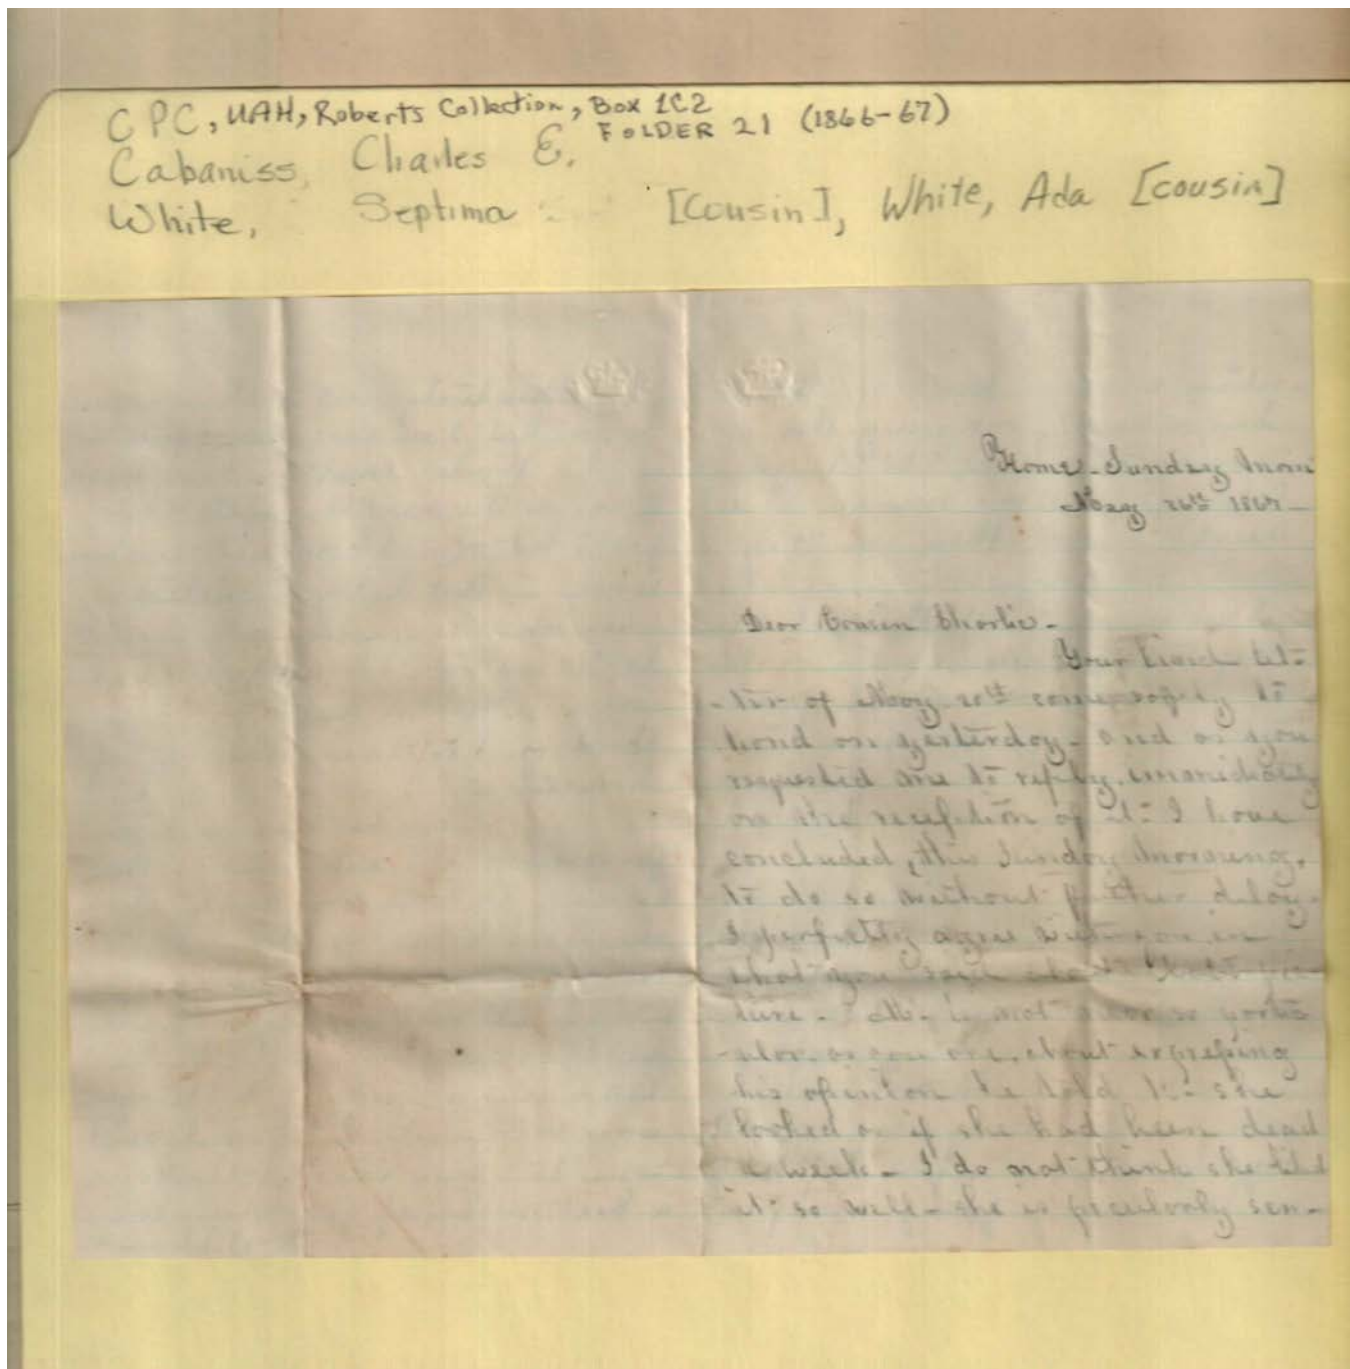 CPC, UAH, Roberts Collection, Box 1C2
FOLDER 21 (1866-67)
Cabaniss, Charles E.
White, Septima [Cousin], White, Ada [cousin]
Home - Sunday Morn
May 26th 1867 -
Dear Cousin Charlie -
Your kind let-
-ter of May 20th came safely to
hand on yesterday - and as you
requested me to reply immediately
on the reception of it - I have
concluded, this Sunday morning,
to do so without further delay -
I perfectly agree with you in
what you said about
-ture - not so partic
-ular as you are, about expressing
his opinion he told she
looked as if she had been dead
a week - I do not think she liked
it so well - she is peculiarly sen-